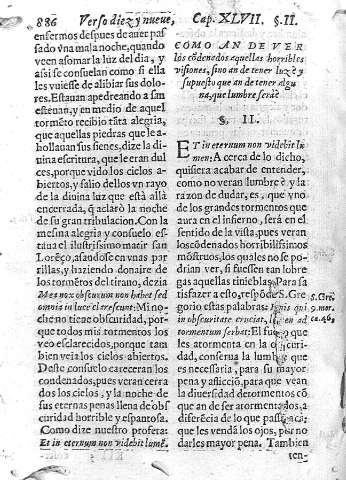 886 Verso diez y nueve, Cap. XLVII. §. II.
enfermos despues de auer pas
sado vna mala noche, quando
veen asomar la luz del dia, y
assi se consuelan como si ella
les vuiesse de alibiar sus dolo-
res. Estauan apedreando a san
esteuan, y en medio de aquel
tormēto recibio tāta alegria,
que aquellas piedras que le a-
bollauan sus sienes, dize la di-
uina escritura, que le eran dul
ces, porque vido los cielos a-
biertos, y salio dellos vn rayo
de la diuina luz que està allà
encerrada, q̄ aclarò la noche
de su gran tribulacion. Con la
mesma alegria y consuelo es-
taua el ilustrissimo martir san
Lorēço, asandose en vnas par
rillas, y haziendo donaire de
los tormētos del tirano, dezia
Mea nox obscurum non habet sed
omnia in luce clarescunt: Mi no-
che no tiene obscuridad, por-
que todos mis tormentos los
veo esclarecidos, porque tam
bien veia los cielos abiertos.
Deste consuelo careceran los
condenados, pues veran cerra
dos los cielos, y la noche de
sus eternas penas llena de obs-
curidad horrible y espantosa.
Como dize nuestro profeta:
Et in eternum non videbit lumē.
COMO AN DE VER
los cōdenados aquellas horribles
visiones, sino an de tener luz: è y
supuesto que an de tener algu
na, que lumbre serà:
§. II.
ET in eternum non videbit lu
men: A cerca de lo dicho,
quisiera acabar de entender,
como no veran lumbre: y la
razon de dudar, es, que vno
de los grandes tormentos que
aura en el infierno, serà en el
sentido de la vista, pues veran
los cōdenados horribilissimos
mōstruos, los quales no se po-
drian ver, si fuessen tan lobre
gas aquellas tinieblas. Para sa
tisfazer a esto, respōde S. Gre
gorio estas palabras: Ignis qui
in obscuritate cruciat, in
tormentum seruat: El fuego que
les atormenta en la obscuri-
dad, conserua la lumbre que
es necessaria, para su mayor
pena y aflicciō, para que vean
la diuersidad de tormentos cō
que an de ser atormentados, a
diferēcia de lo que passa acà:
que les vendā los ojos, por no
darles mayor pena. Tambien
S. Gre.
9. mor.
ca. 46.
ten-